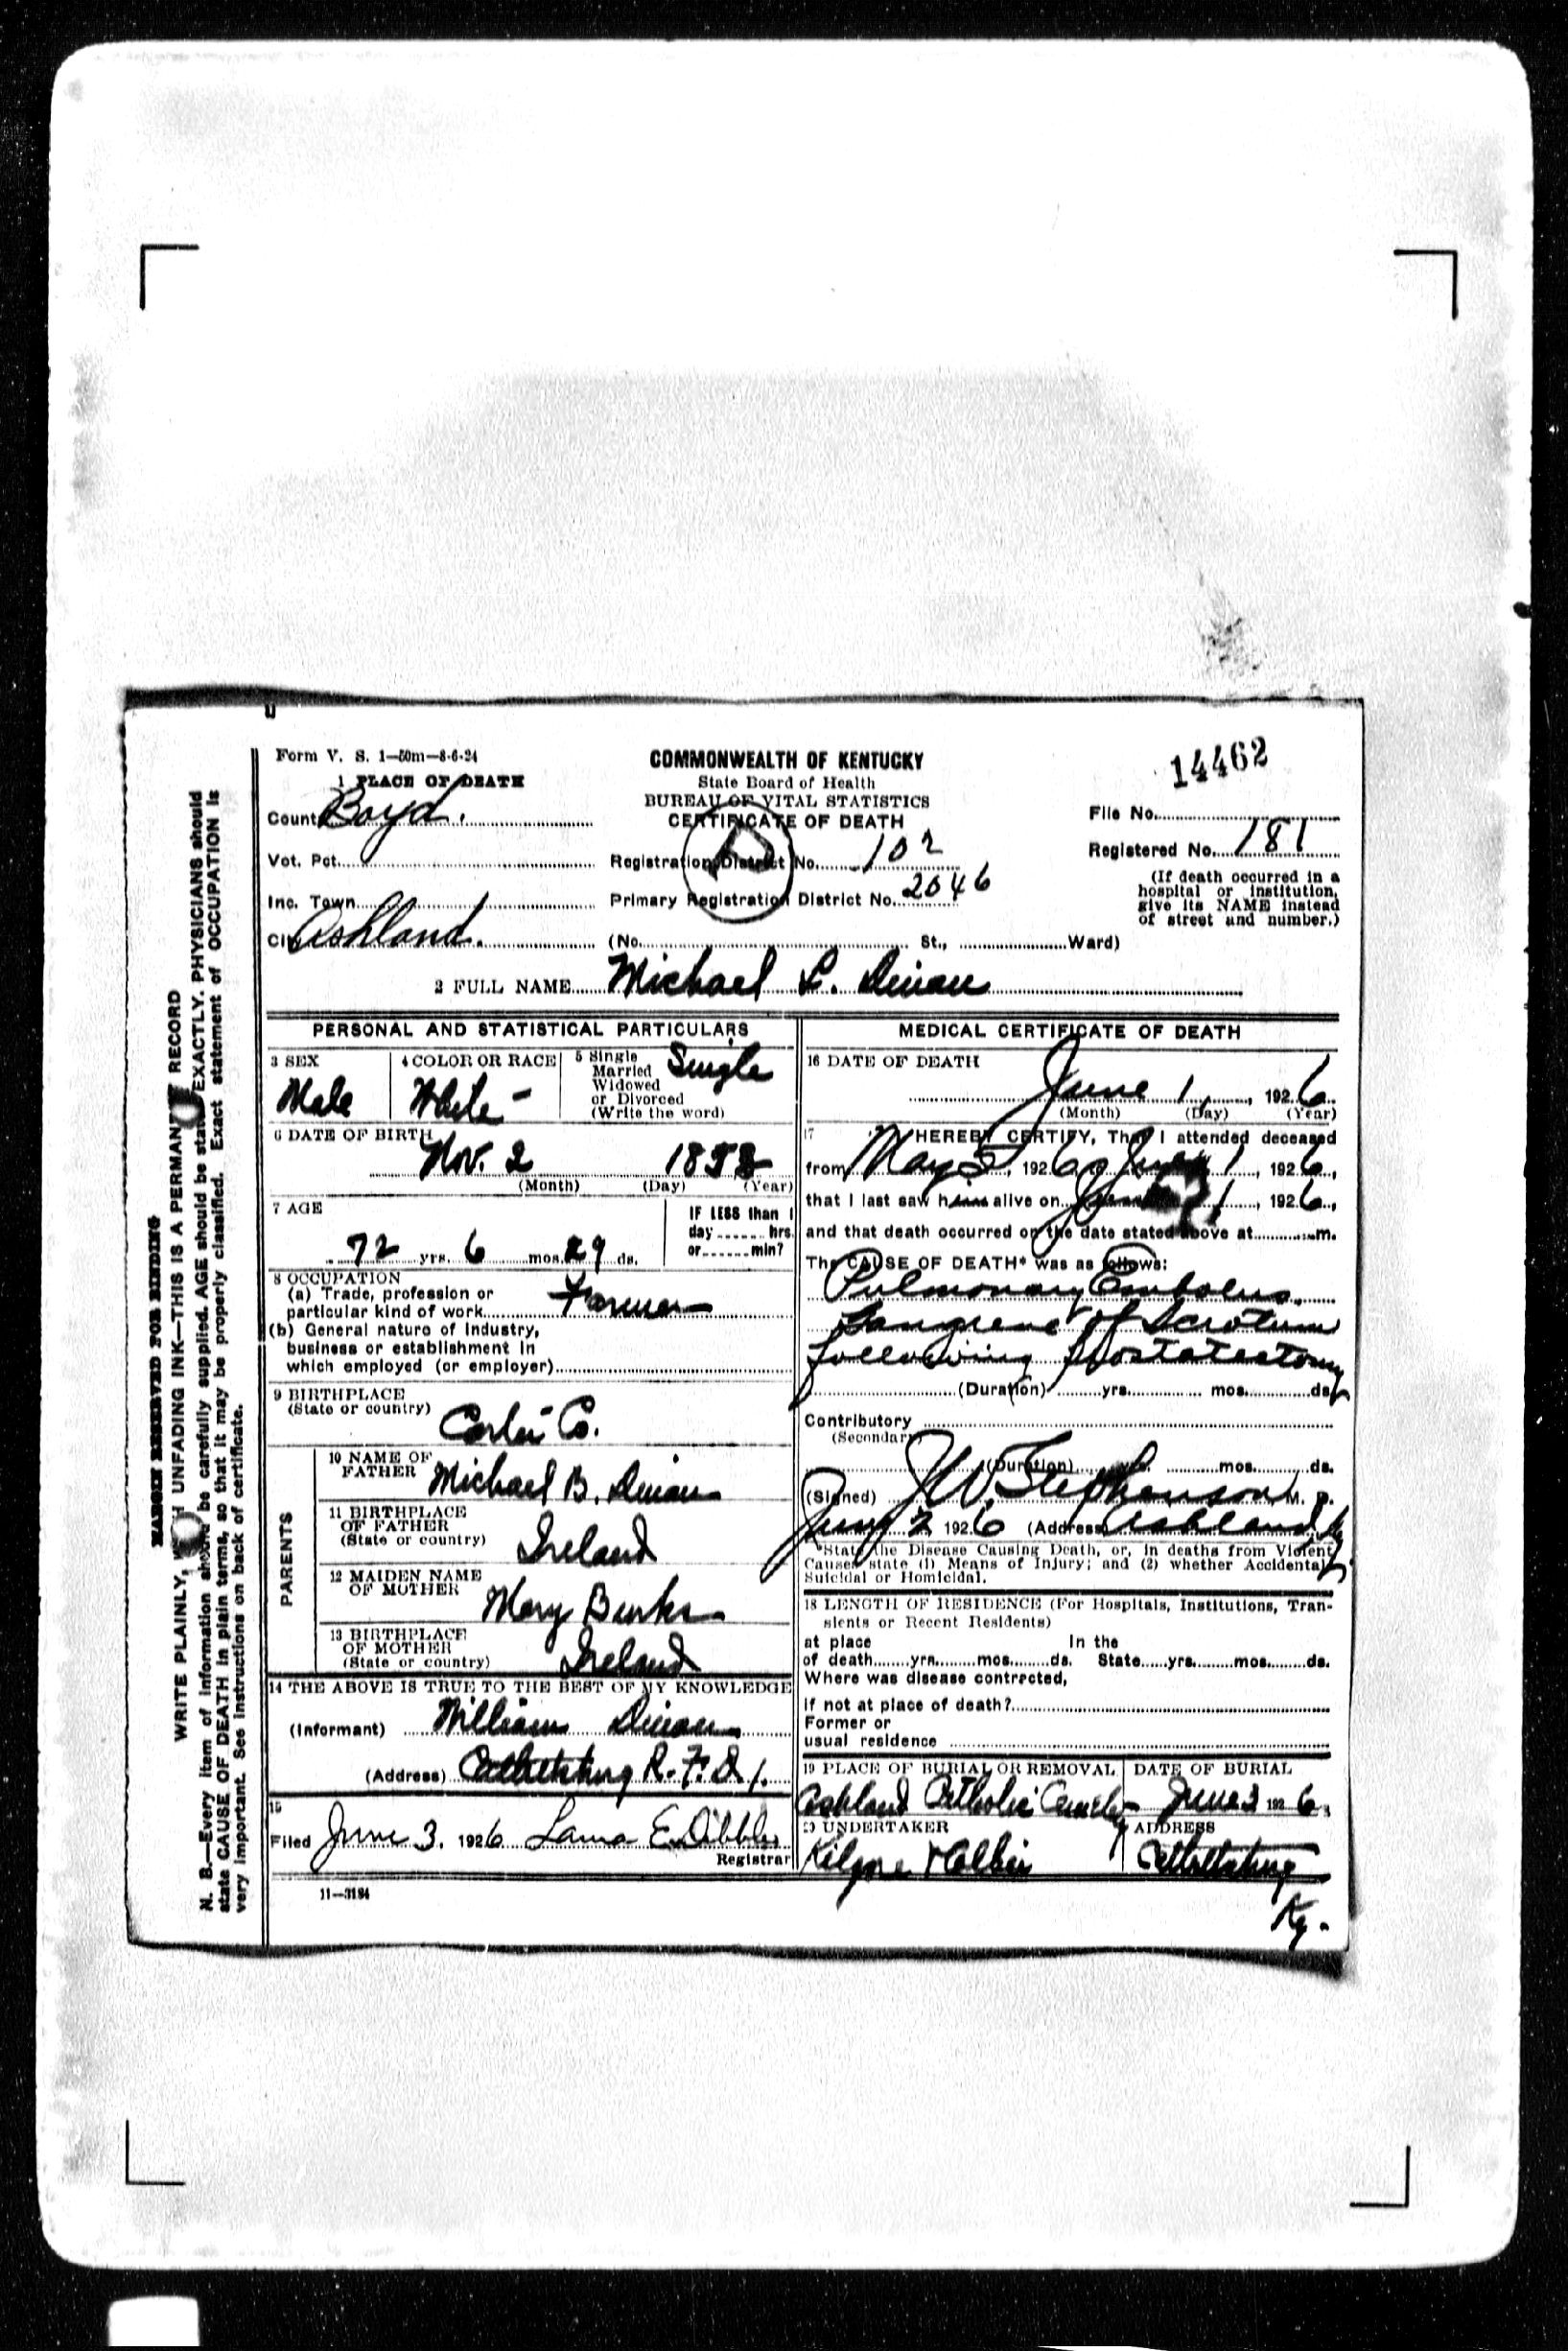 Form V. S. 1—50m—8-6-24
COMMONWEALTH OF KENTUCKY
State Board of Health
BUREAU OF VITAL STATISTICS
CERTIFICATE OF DEATH
14462
1 PLACE OF DEATH
County Boyd.
File No.
Vot. Pct. Registration District No. 102 Registered No. 181
Inc. Town Primary Registration District No. 2046
(If death occurred in a hospital or institution, give its NAME instead of street and number.)
City Ashland. (No. St., Ward)
2 FULL NAME Michael L. Dinan
PERSONAL AND STATISTICAL PARTICULARS
3 SEX
Male
4 COLOR OR RACE
White
5 Single
Married
Widowed
or Divorced
(Write the word)
Single
6 DATE OF BIRTH
Nov. 2 185
(Month) (Day) (Year)
7 AGE
72 yrs. 6 mos. 29 ds.
IF LESS than 1
day hrs.
or min?
8 OCCUPATION
(a) Trade, profession or
particular kind of work Farmer
(b) General nature of industry,
business or establishment in
which employed (or employer)
9 BIRTHPLACE
(State or country)
Carter Co.
PARENTS
10 NAME OF
FATHER Michael B. Dinan
11 BIRTHPLACE
OF FATHER
(State or country) Ireland
12 MAIDEN NAME
OF MOTHER Mary Burke
13 BIRTHPLACE
OF MOTHER
(State or country) Ireland
14 THE ABOVE IS TRUE TO THE BEST OF MY KNOWLEDGE
(Informant) William Dinan
(Address) Catlettsburg R.F.D 1.
15
Filed June 3. 1926 E. Dibble
Registrar
11—3184
MEDICAL CERTIFICATE OF DEATH
16 DATE OF DEATH
June 1, 1926
(Month) (Day) (Year)
17 I HEREBY CERTIFY, That I attended deceased
from May 1926 to June 1, 1926,
that I last saw him alive on June 1, 1926,
and that death occurred on the date stated above at m.
The CAUSE OF DEATH* was as follows:
Pulmonary Embolus.
Gangrene of Scrotum
following Prostatectomy
(Duration) yrs. mos. ds.
Contributory
(Secondary)
(Duration) yrs. mos. ds.
(Signed) J W. Stephenson M. D.
June 2 1926 (Address) Ashland Ky
*State the Disease Causing Death, or, in deaths from Violent
Causes state (1) Means of Injury; and (2) whether Accidental,
Suicidal or Homicidal.
18 LENGTH OF RESIDENCE (For Hospitals, Institutions, Tran-
sients or Recent Residents)
at place In the
of death yrs. mos. ds. State yrs. mos. ds.
Where was disease contracted,
if not at place of death?
Former or
usual residence
19 PLACE OF BURIAL OR REMOVAL
Ashland Catholic Cemetery
DATE OF BURIAL
June 3 1926
20 UNDERTAKER
Kilgore & Collier
ADDRESS
Catlettsburg
Ky.
MARGIN RESERVED FOR BINDING
WRITE PLAINLY, WITH UNFADING INK—THIS IS A PERMANENT RECORD
N. B.—Every item of information should be carefully supplied. AGE should be stated EXACTLY. PHYSICIANS should
state CAUSE OF DEATH in plain terms, so that it may be properly classified. Exact statement of OCCUPATION is
very important. See instructions on back of certificate.